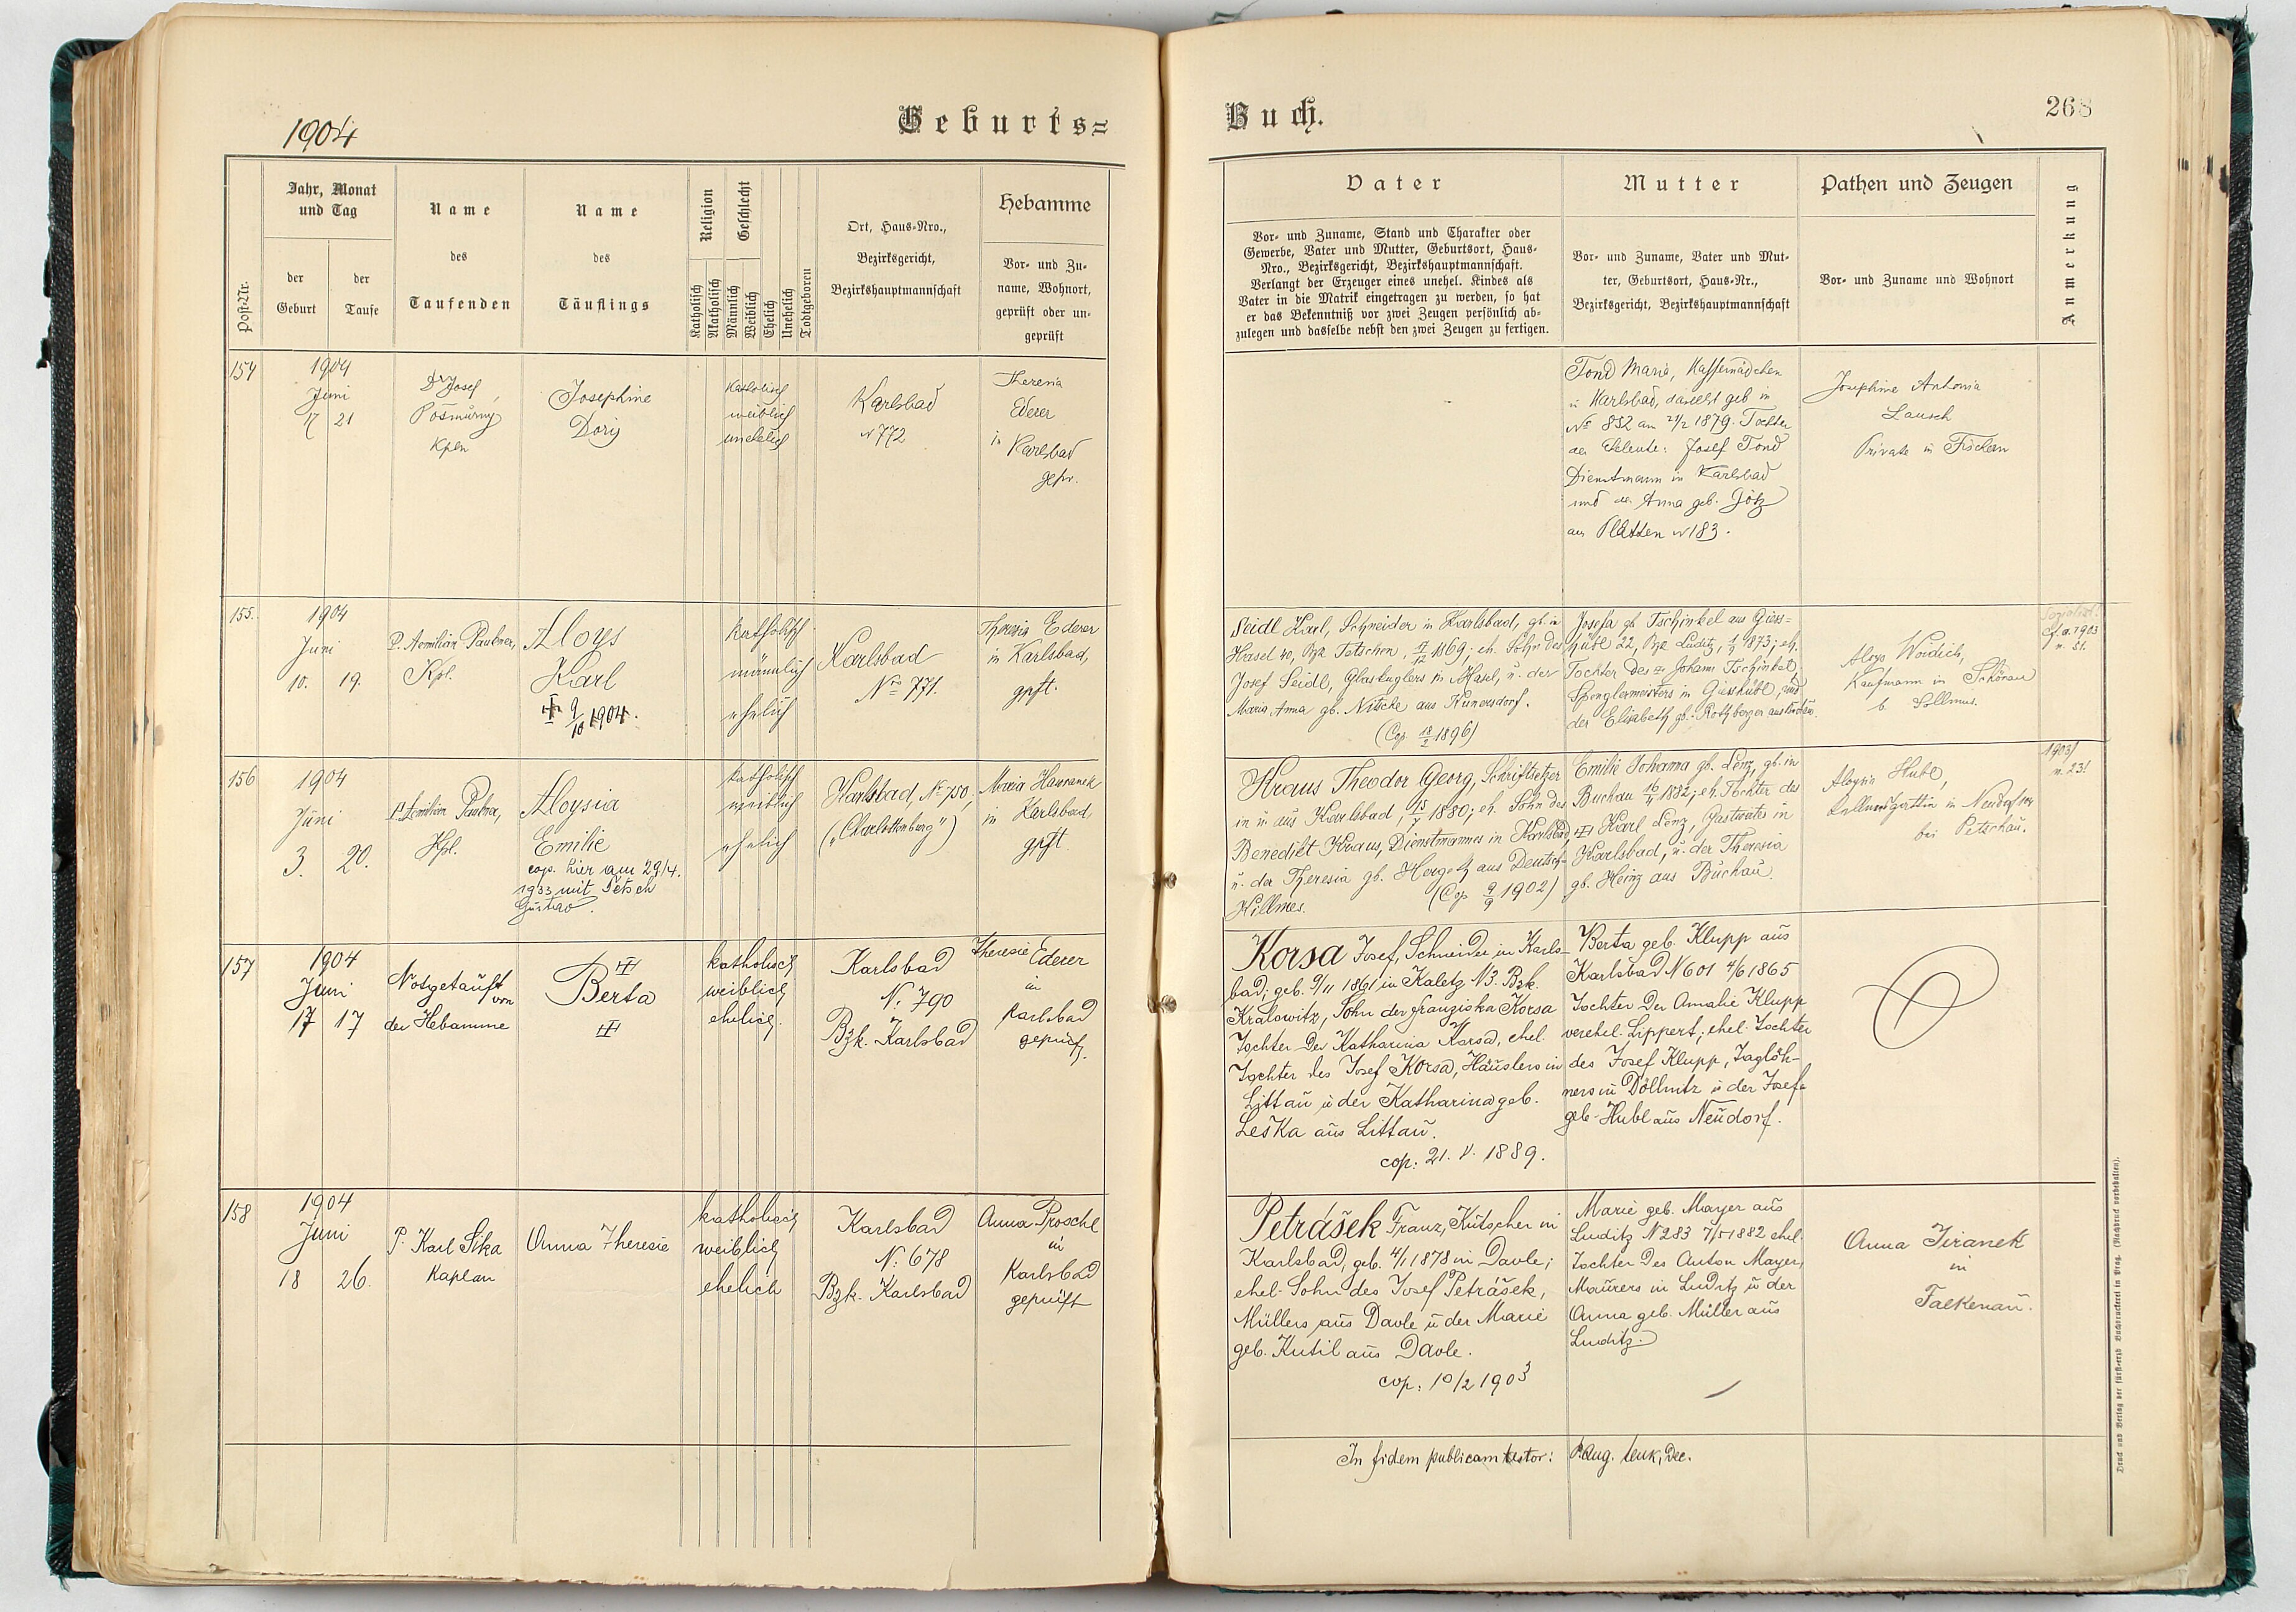 1904
Geburts=
Buch.
268
Post-Nr.
Jahr, Monat
und Tag
der
Geburt
der
Taufe
Name
des
Taufenden
Name
des
Täuflings
Religion
Katholisch
Akatholisch
Geschlecht
Männlich
Weiblich
Ehelich
Unehelich
Todtgeboren
Ort, Haus-Nro.,
Bezirksgericht,
Bezirkshauptmannschaft
Hebamme
Vor- und Zu-
name, Wohnort,
geprüft oder un-
geprüft
Vater
Vor- und Zuname, Stand und Charakter oder
Gewerbe, Vater und Mutter, Geburtsort, Haus-
Nro., Bezirksgericht, Bezirkshauptmannschaft.
Verlangt der Erzeuger eines unehel. Kindes als
Vater in die Matrik eingetragen zu werden, so hat
er das Bekenntniß vor zwei Zeugen persönlich ab-
zulegen und dasselbe nebst den zwei Zeugen zu fertigen.
Mutter
Vor- und Zuname, Vater und Mut-
ter, Geburtsort, Haus-Nr.,
Bezirksgericht, Bezirkshauptmannschaft
Pathen und Zeugen
Vor- und Zuname und Wohnort
Anmerkung
154
1904
Juni
17 21
Dr Josef
Kpln
Josephine
Doris
katholisch
weiblich
unehelich
Karlsbad
N 772
Theresia
Ederer
in
Karlsbad
gepr.
Tond Marie, Kaffemädchen
in Karlsbad, daselbst geb in
No 832 am 21/2 1879. Tochter
der Eheleute: Josef Tond
Dienstmann in Karlsbad
und der Anna geb. Götz
aus Platten N 183.
Josephine Antonia
Lausch
Private in Fischern
155.
1904
Juni
10. 19.
P. Aemilian Paukner,
Kpl.
Aloys
Karl
9/10 1904.
katholisch
männlich
ehelich
Karlsbad
Nro 771.
Theresia Ederer
in Karlsbad,
gpft.
Seidl Karl, Schneider in Karlsbad, gb. in
Hasel 40, Bzk Tetschen, 17/12 1869; eh. Sohn des
Josef Seidl, Glaskuglers in Hasel, u. der
Maria Anna gb. Nitsche aus Kunersdorf.
(Cop. 18/2 1896)
Josefa gb. Tschinkel aus Giess-
hübl 22, Bzk Luditz, 1873; eh.
Tochter des Johann Tschinkel,
Spenglermeisters in Giesshübl, und
der Elisabeth gb. Rothberger aus
Aloys Woidich,
Kaufmann in Schönau
b. Sollmus.
cf. a. 1903
n. 51.
156
1904
Juni
3. 20.
P. Aemilian Paukner,
Kpl.
Aloysia
Emilie
cop. hier am 29/4.
1933 mit Petsch
Gustav.
katholisch
weiblich
ehelich
Karlsbad, No 750,
("Charlottenburg")
Maria Hawranek
in Karlsbad
gpft.
Kraus Theodor Georg, Schriftsetzer
in u. aus Karlsbad, 15/1 1880; eh. Sohn des
Benedikt Kraus, Dienstmannes in Karlsbad,
u. der Theresia gb. Hergetz aus Deutsch-
Killmes. (Cop 9/9 1902)
Emilie Johanna gb. Lenz, gb. in
Buchau 16/11 1882; eh. Tochter des
Karl Lenz, Gastwirtes in
Karlsbad, u. der Theresia
gb. Heinz aus Buchau.
Aloysia Hubl,
in Neudorf
bei Petschau.
1903/
n. 23!
157
1904
Juni
17 17
Notgetauft
von
der Hebamme
Berta
katholisch
weiblich
ehelich.
Karlsbad
N. 790
Bzk. Karlsbad
Theresie Ederer
in
Karlsbad
geprüft.
Korsa Josef, Schneider in Karls-
bad; geb. 9/11 1861 in Kaletz N3. Bzk.
Kralowitz, Sohn der Franziska Korsa
Tochter der Katharina Korsa, ehel.
Tochter des Josef Korsa, Häuslers in
Littau u der Katharina geb.
Leska aus Littau.
cop: 21. V. 1889.
Berta geb. Klupp aus
Karlsbad N 601 4/6 1865
Tochter der Amalie Klupp
verehel. Lippert; ehel. Tochter
des Josef Klupp, Taglöh-
ners in Döllnitz u der Josefa
geb. Hubl aus Neudorf.
158
1904
Juni
18 26.
P. Karl Sika
Kaplan
Anna Theresie
katholisch
weiblich
ehelich
Karlsbad
N. 678
Bzk. Karlsbad
Anna Proschl
in
Karlsbad
geprüft
Petrášek Franz, Kutscher in
Karlsbad, geb. 4/1 1878 in Davle;
ehel. Sohn des Josef Petrášek,
Müllers aus Davle u der Marie
geb. Kutil aus Davle.
cop: 10/2 1903
Marie geb. Mayer aus
Luditz N 283 7/5 1882 ehel.
Tochter des Anton Mayer,
Maurers in Luditz u der
Anna geb. Müller aus
Luditz.
Anna Jiranek
in
Falkenau.
In fidem publicam testor: P. Aug. Lenk, Dec.
Druck und Verlag der fürst-erzb Buchdruckerei in Prag. (Nachdruck vorbehalten).